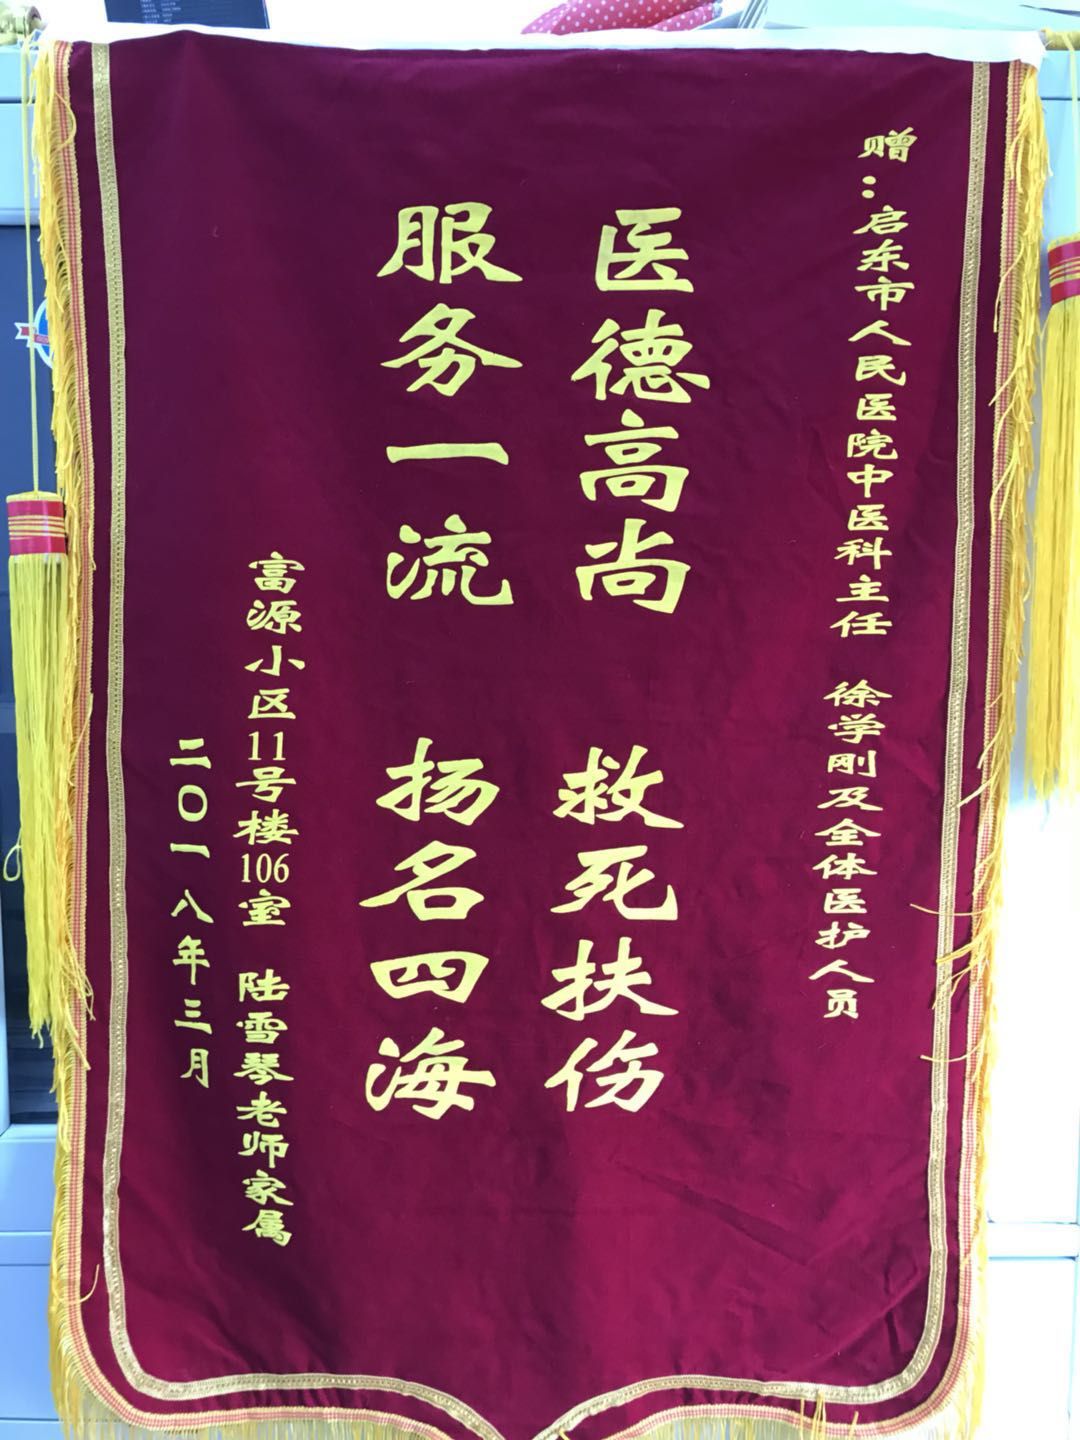 赠：启东市人民医院中医科主任 徐学刚及全体医护人员
医德高尚 救死扶伤
服务一流 扬名四海
富源小区11号楼106室 陆雪琴老师家属
二〇一八年三月